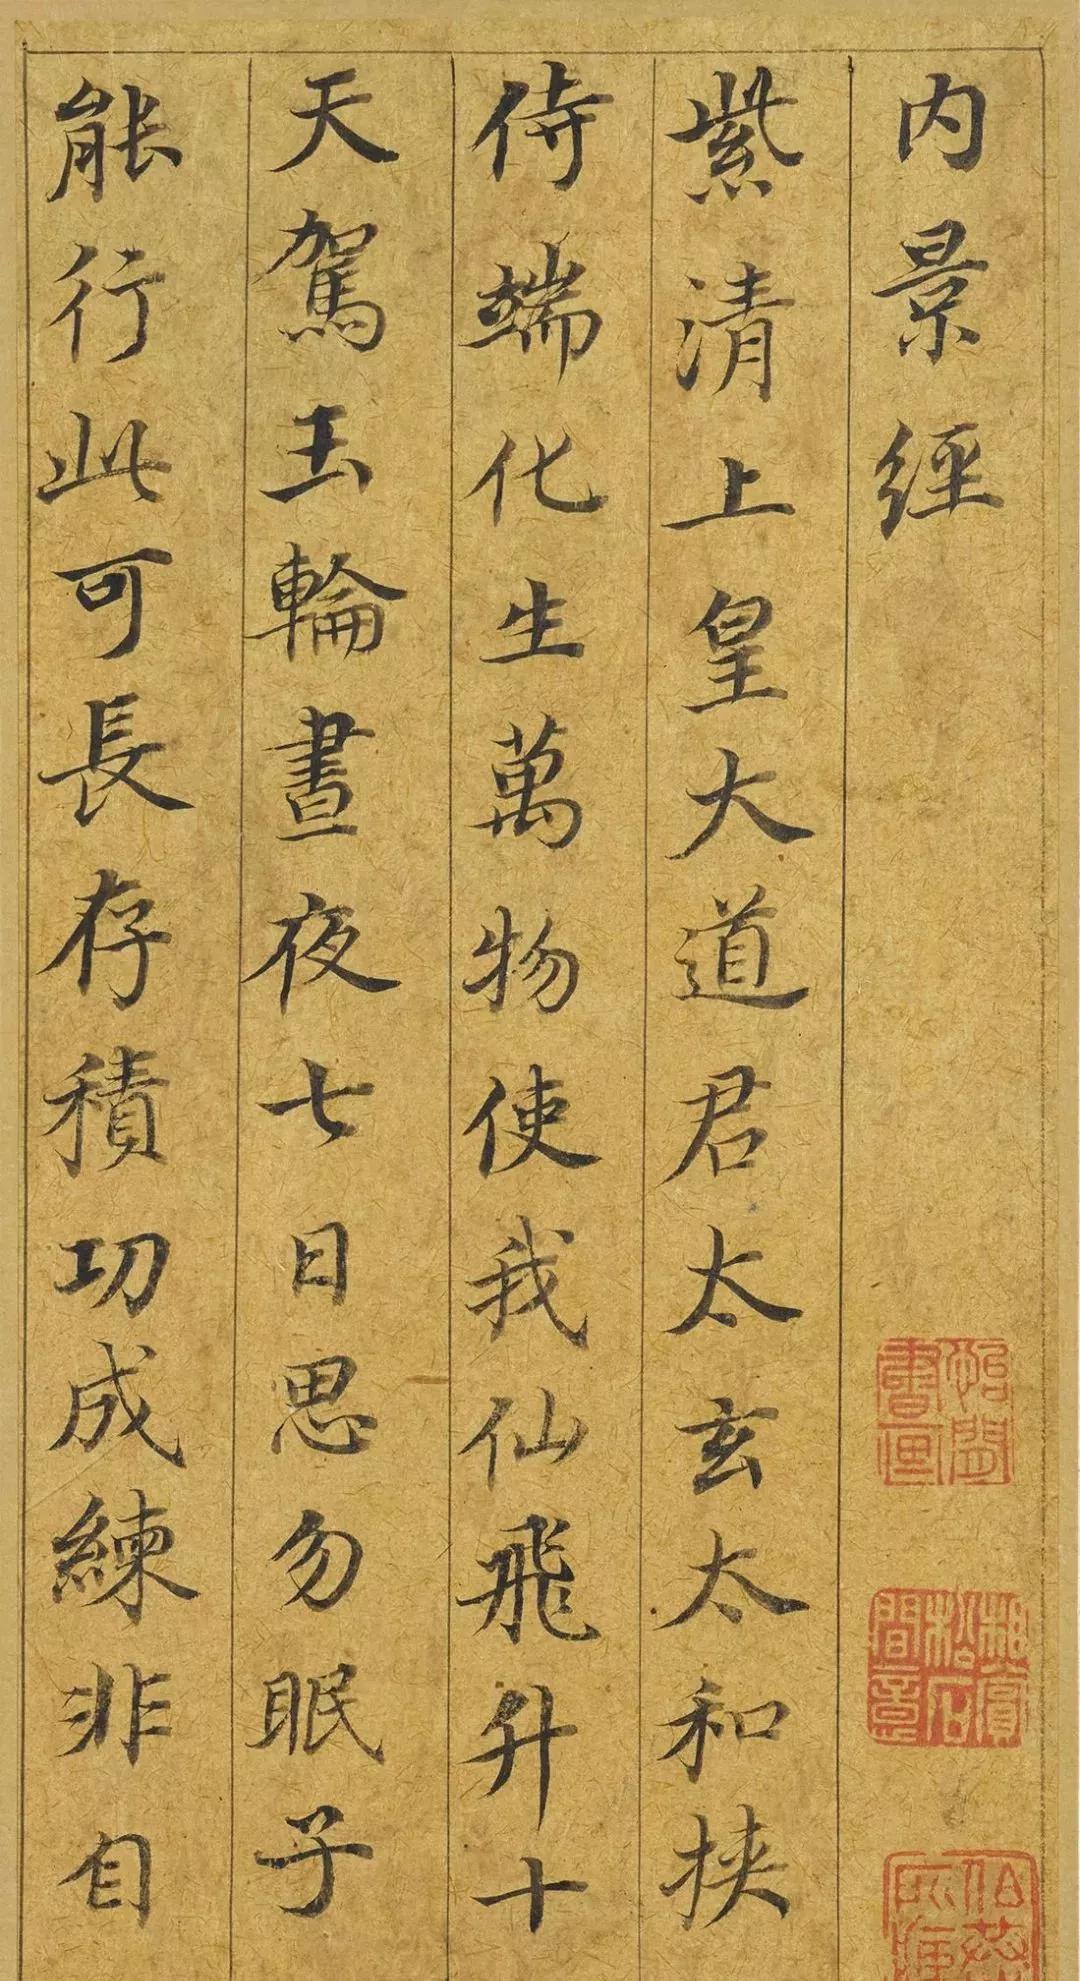 内景經
紫清上皇大道君太玄太和挾
侍端化生萬物使我仙飛升十
天駕玉輪晝夜七日思勿眠子
能行此可長存積功成練非自
怡閣書畫
相賞松石間意